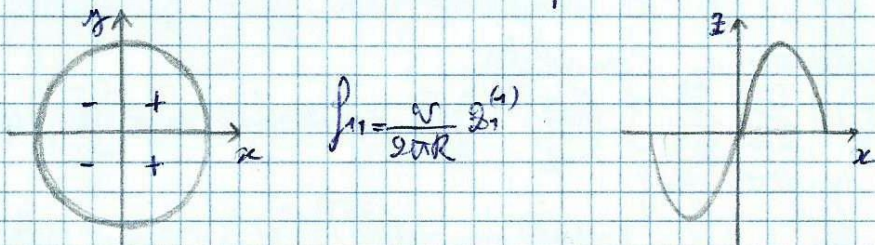 y z
- + f₁₁ = v/2πR z₁⁽¹⁾
- + x x